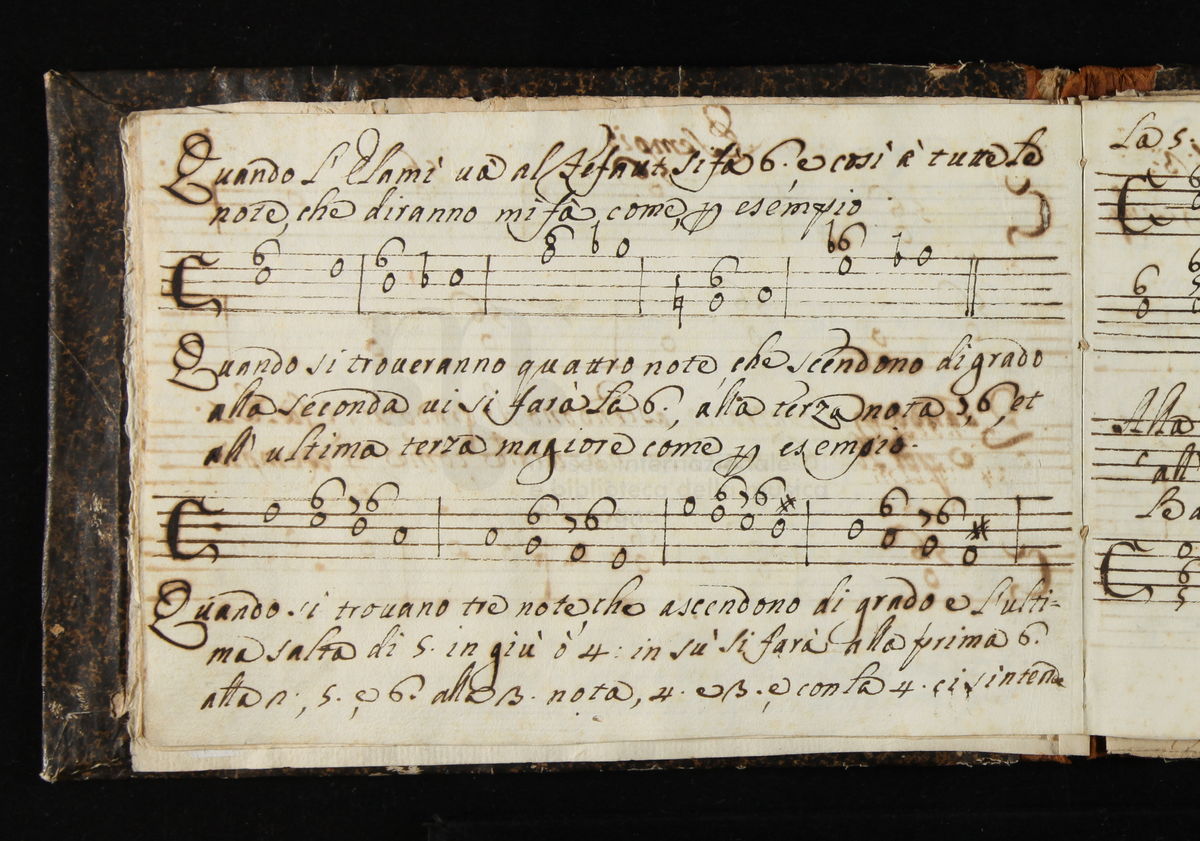 Quando l'Elamì và al Fefaut si fà 6. e così à tutte le
note, che diranno mi fà, come, p esempio
6 6 ♭ 6 ♭ ♮ 6 ♭6 ♭
Quando si troveranno quattro note, che scendono di grado
alla seconda vi si farà la 6., alla terza nota 7,6, et
all' ultima terza magiore come p esempio.
6 76 6 76 6 76 # 6 76 #
Quando si trovano tre note, che ascendono di grado e l'ulti=
ma salta di 5. in giù ò 4: in sù si farà alla prima 6.
alla 2; 5. e 6. alla 3. nota, 4. e 3. e con la 4. ci s'intende
La 5.
6
6
5
6
Alla
all
Le Ba
6
5
museo internazionale
biblioteca della musica